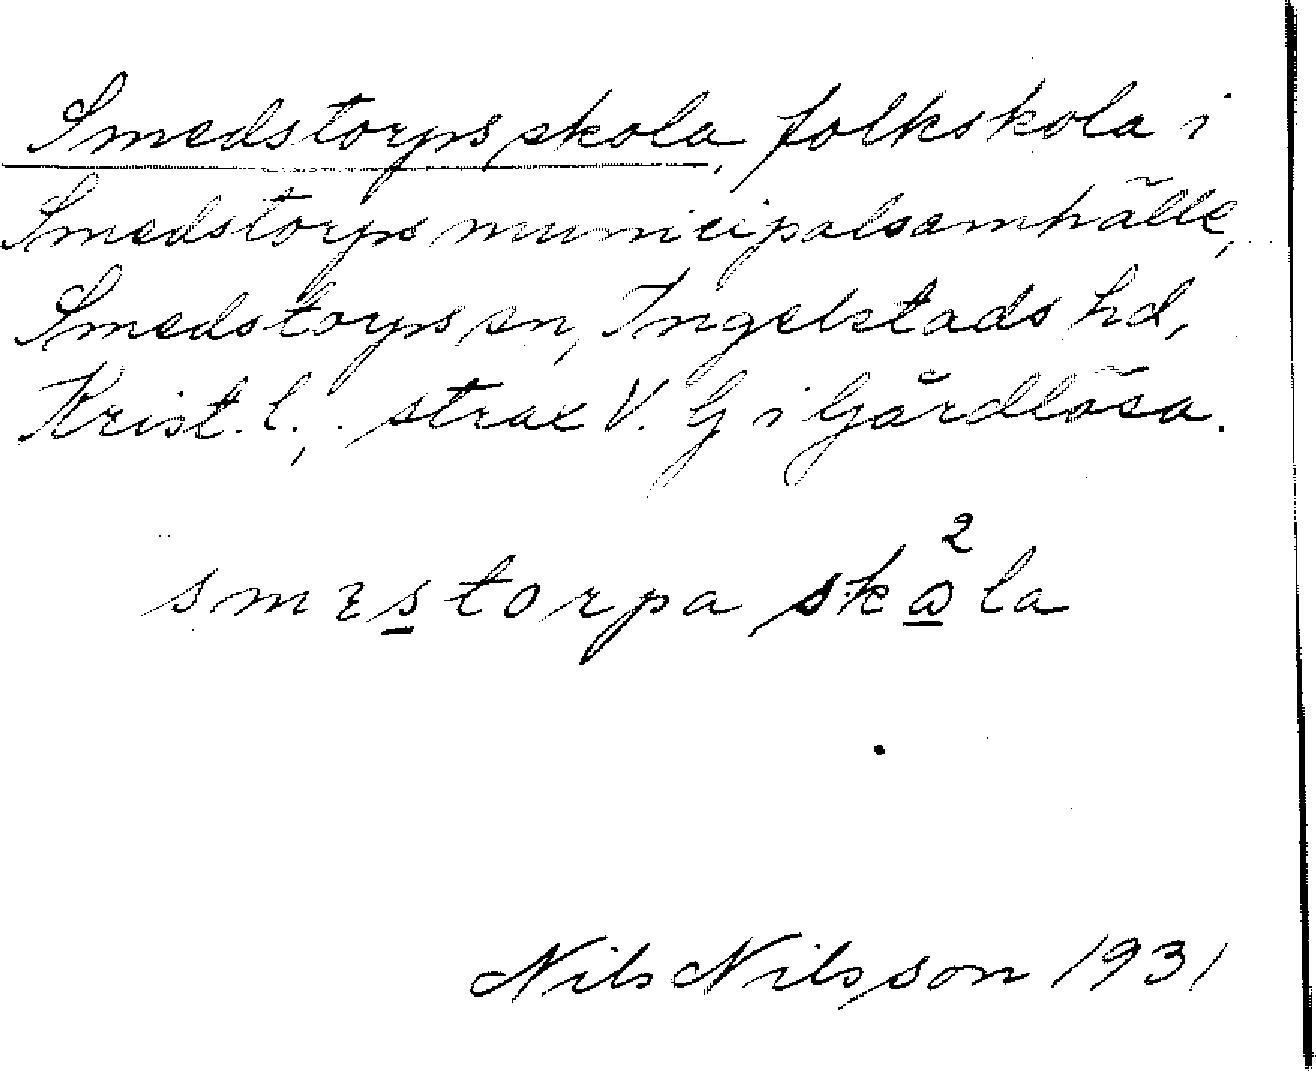 Smedstorps skola, folkskola i
Smedstorps municipalsamhälle,
Smedstorps sn, Ingelstads hd,
Krist. l., strax V. G i Gärdlösa.
2
smɛstorpa skola
Nils Nilsson 1931